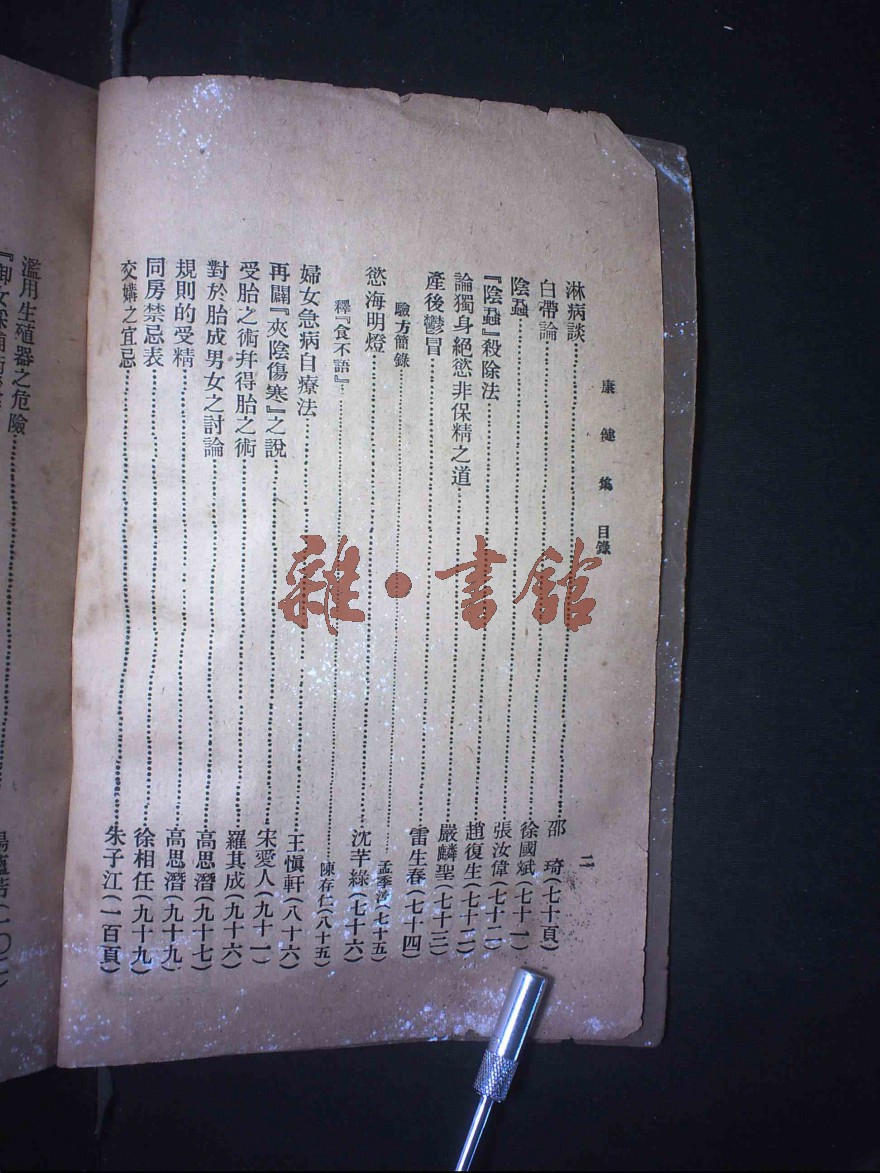 康健集 目錄 二
淋病談 邵琦(七十頁)
白帶論 徐國斌(七十一)
陰蝨 張汝偉(七十二)
『陰蝨』殺除法 趙復生(七十二)
論獨身絕慾非保精之道 嚴麟聖(七十三)
產後鬱冒 雷生春(七十四)
驗方簡錄 孟季(七十五)
慾海明燈 沈芊綠(七十六)
釋『食不語』 陳存仁(八十五)
婦女急病自療法 王愼軒(八十六)
再闢『夾陰傷寒』之說 宋愛人(九十一)
受胎之術幷得胎之術 羅其成(九十六)
對於胎成男女之討論 高思潛(九十七)
規則的受精 高思潛(九十九)
同房禁忌表 徐相任(九十九)
交媾之宜忌 朱子江(一百頁)
濫用生殖器之危險
雜·書館